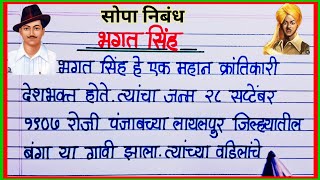 सोपा निबंध
भगत सिंह
भगत सिंह हे एक महान क्रांतिकारी
देशभक्त होते. त्यांचा जन्म २८ सप्टेंबर
१९०७ रोजी पंजाबच्या लायलपुर जिल्ह्यातील
बंगा या गावी झाला. त्यांच्या वडिलांचे